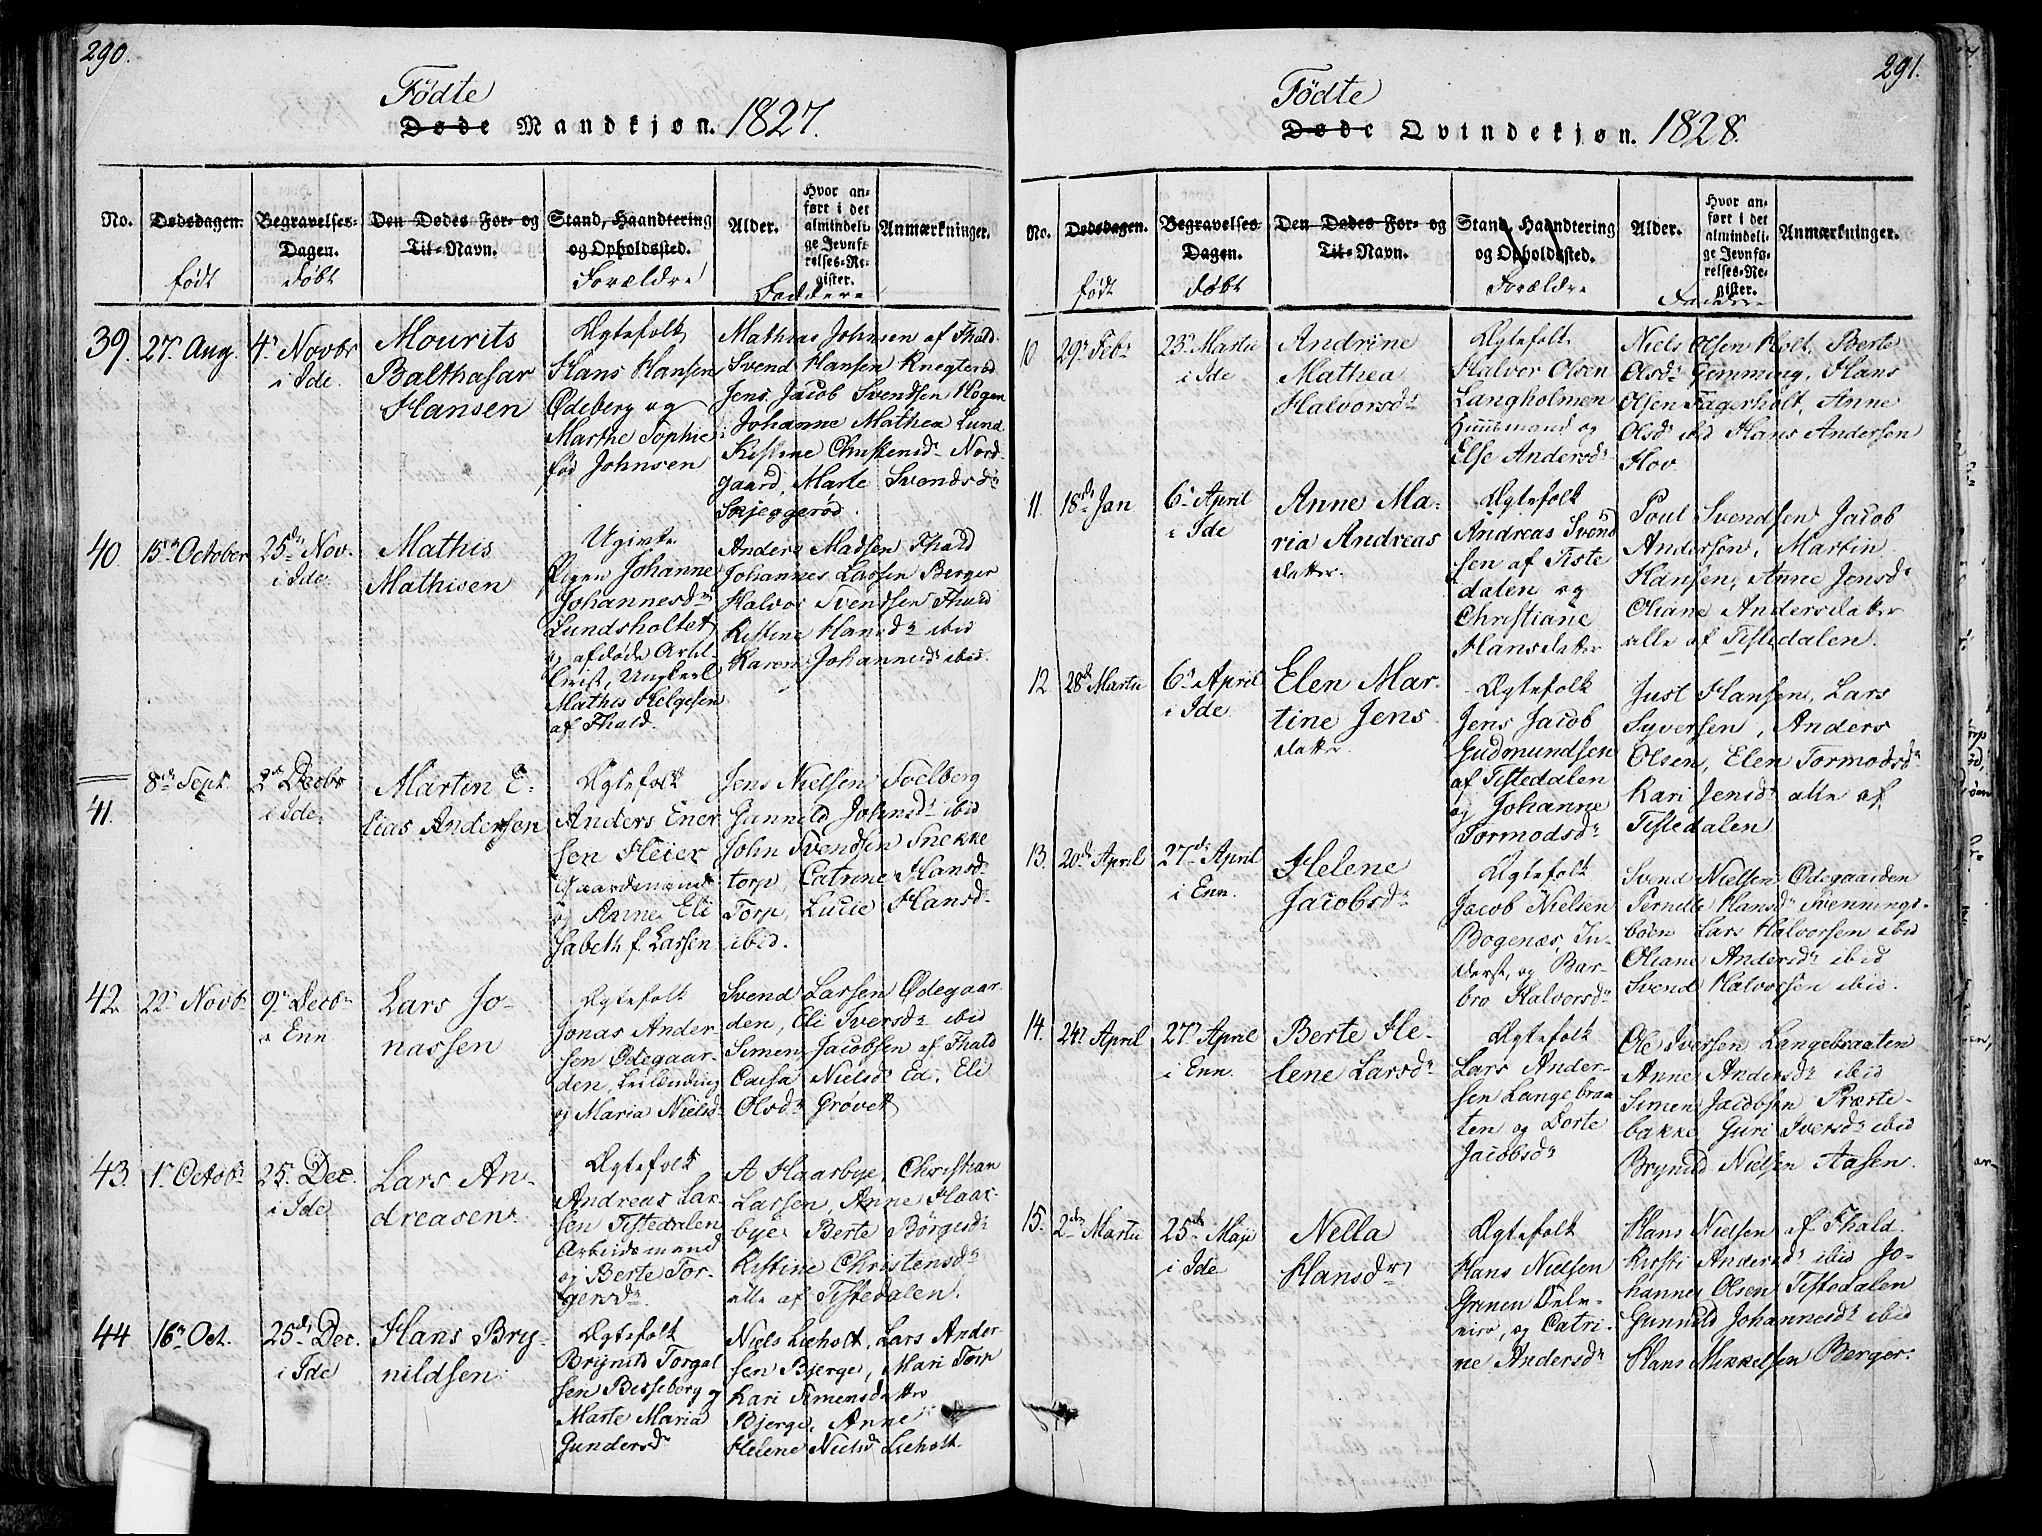 290.
Födte
Døde Mandkjøn. 1827.
No.
Dødsdagen.
født
Begravelses-
Dagen.
døbt
Den Dødes For- og
Til-Navn.
Stand, Haandtering
og Opholdssted.
Forældre
Alder.
Hvor an-
ført i det
almindeli-
ge Jevnfø-
relses-Re-
gister.
Faddere
Anmærkninger.
39.
27. Aug.
4. Novbr
i Ide.
Mourits
Balthasar
Hansen
Ægtefolk
Hans Hansen
Ødeberg og
Marthe Sophie
fød Johnsen
Mathias Johnsen af Fhald.
Svend Hansen Knegterød
Jens Jacob Svendsen Hogen
Johanne Mathea Lund
Kistine Christensd. Nord-
gaard, Marte Svendsd.
Skjeggerød.
40.
15de October
25de Nov.
i Ide.
Mathis
Mathisen
Ugivte
Pigen Johanne
Johannesd.
Lundsholtet
og afdøde Artil-
lerist, Ungkarl
Mathis Helgesen
af Fhald.
Anders Madsen Fhald
Johannes Larsen Berger
Halvor Svendsen Fhald
Kistine Hansd. ibid
Karen Johannesd. ibid.
41.
8de Sept.
2de Decbr
i Ide.
Martin E-
lias Andersen
Ægtefolk
Anders Ener
sen Heier
Gaardmand
og Anne Eli
sabeth f. Larsen
Jens Nielsen Folberg
Gunnild Johnsd. ibid
John Svendsen Snekke
torp, Catrine Hansd.
Torp, Lucie Hansd.
ibid.
42.
22. Novb.
9. Decb.
i Enn
Lars Jo-
nassen
Ægtefolk
Jonas Ander-
sen Ødegaar-
den, Leilending
og Maria Nielsd.
Svend Larsen Ødegaar-
den, Eli Iversd. ibid
Simen Jacobsen af Fhald
Caisa Nielsd. Ed. Eli
Olsd. Grøvet
43.
1. Octob.
25. Dec.
i Ide
Lars An-
dreasen
Ægtefolk
Andreas Lar-
sen Tistedalen
Arbeidsmand
og Berte Tor-
gersd.
A Haarbye, Christian
Larsen, Anne Haar-
bye, Berte Børgesd.
Kistine Christensd.
alle af Tistedalen.
44
16. Oct.
25de Dec.
i Ide
Hans Bry-
nildsen
Ægtefolk
Brynild Torgal
sen Bisseberg og
Marte Maria
Gundersd.
Niels Lieholt, Lars Ander-
sen Bjerge, Mari Torp
Kari Simensdatter
Bjerge, Anne
Helene Nielsd. Lieholt.
291.
Födte
Døde Qvindekjøn. 1828.
No.
Dødsdagen.
født
Begravelses-
Dagen.
døbt
Den Dødes For- og
Til-Navn.
Stand, Haandtering
og Opholdssted.
Forældre
Alder.
Hvor an-
ført i det
almindeli-
ge Jevnfø-
relses-Re-
gister.
Faddere
Anmærkninger.
10
29. Feb.
23. Martii
i Ide
Andrine
Mathea
Halvorsd.
Ægtefolk
Halvor Olsen
Langholmen
Huusmand og
Else Andersd.
Niels Olsen Holt, Berte
Olsd. Gjemming, Hans
Olsen Fagerholt, Anne
Olsd. ibid Hans Andersen
Hov
11.
18de Jan
6. April
i Ide
Anne Ma-
ria Andreas
datter.
Ægtefolk
Andreas Svend
sen af Tiste
dalen og
Christiane
Hansdatter
Poul Svendsen Jacob
Andersen, Martin
Hansen, Anne Jensd.
Oliane Andersdatter
alle af Tistedalen.
12
28de Martii
6. April
i Ide
Elen Mar-
tine Jens
datter.
Ægtefolk
Jens Jacob
Gudmundsen
af Tistedalen
og Johanne
Tormodsd.
Just Hansen, Lars
Syversen, Anders
Olsen, Elen Tormodsd.
Kari Jensd. alle af
Tistedalen
13.
20de April
27de April
i Enn.
Helene
Jacobsd.
Ægtefolk
Jacob Nielsen
Bogenæs, In-
derst, og Bar-
bro Halvorsd.
Svend Nielsen Ødegaarden
Pernille Hansd. Svennings-
bøen Lars Halvorsen ibid
Oliane Andersd. ibid
Svend Halvorsen ibid.
14.
24. April
27. April
i Enn.
Berte He-
lene Larsd.
Ægtefolk
Lars Ander-
sen Langebraa
ten og Dorte
Jacobsd.
Ole Iversen Langebraaten
Anne Andersd. ibid
Simen Jacobsen Præste-
bakke Guri Iversd. ibid
Brynild Nielsen Aasen.
15.
2den Martii
25de Maji
i Ide
Nella
Hansd.
Ægtefolk
Hans Nielsen
Grinen
og Catri-
ne Andersd.
Hans Nielsen af Fhald
Kirsti Andersd. ibid Jo-
hannes Olsen Tistedalen
Gunnild Johannesd. ibid
Hans Mikkelsen Berger.